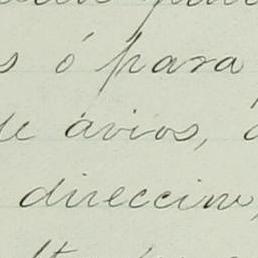 s ó para
de avios, ó
direccion,